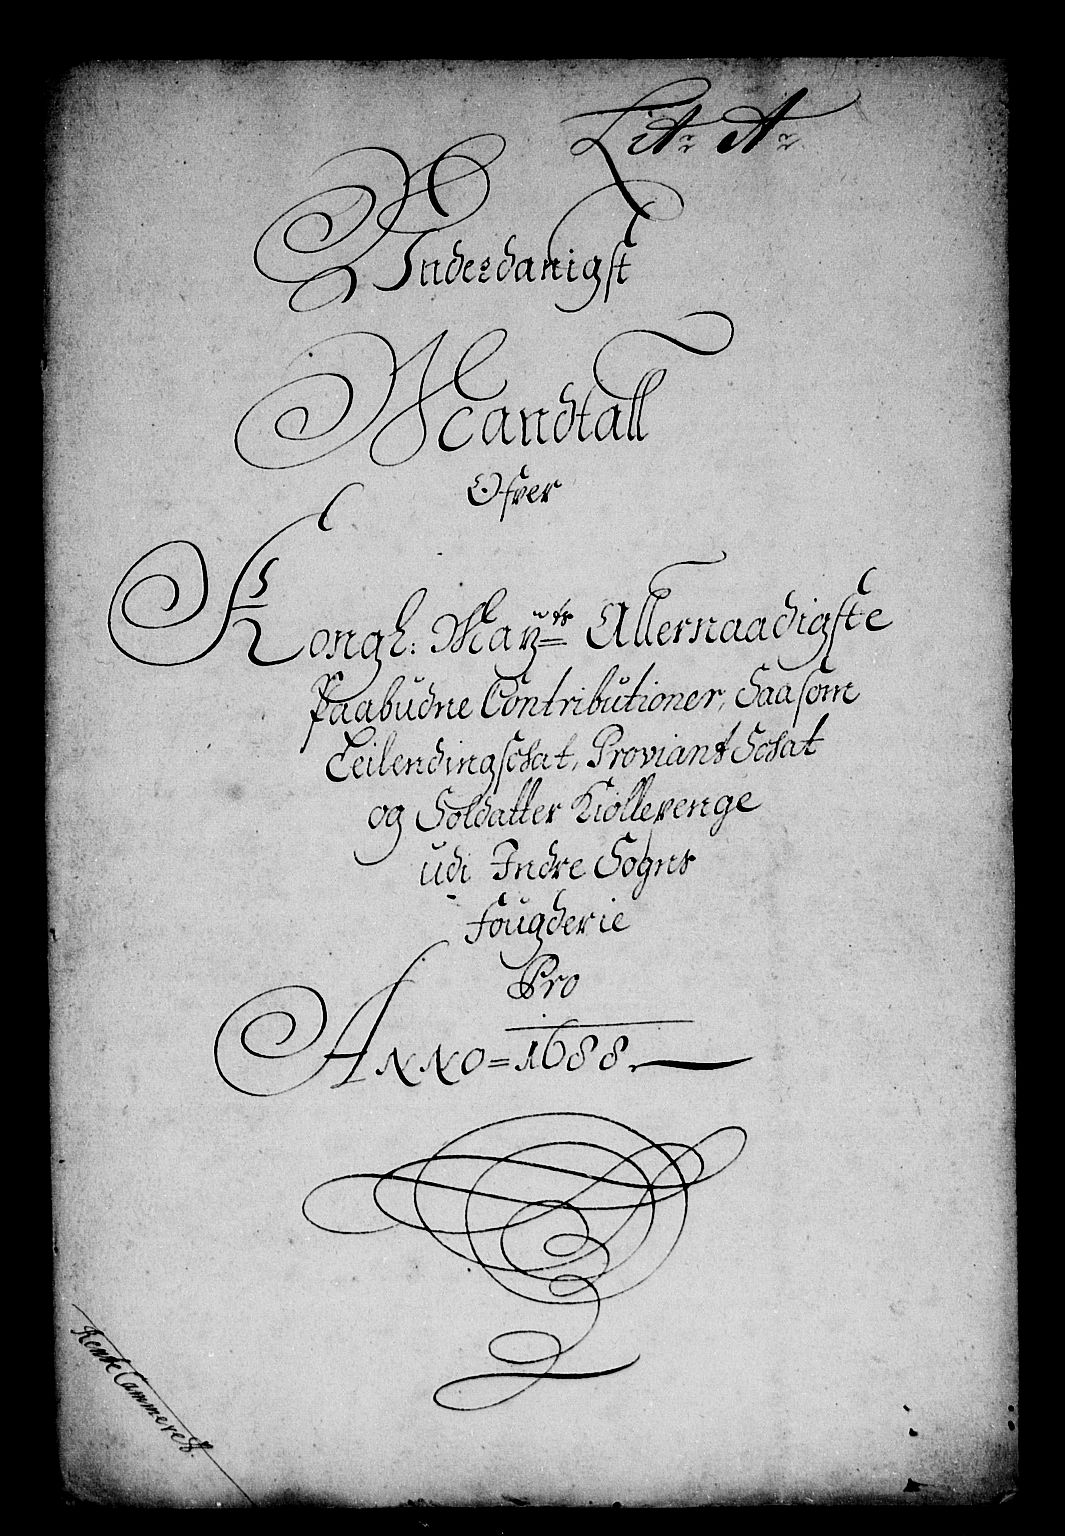 Lit: A:
Underdanigst
Mandtall
Ofver
Kongl: Mayts Allernaadigste
Paabudne Contributioner, Saasom
Leilendingschat, Proviant Schat
og Soldatter Kiollepenge
udi Indre Sogns
fougderie
Pro
ANNO = 1688.
Rente Cammeret.